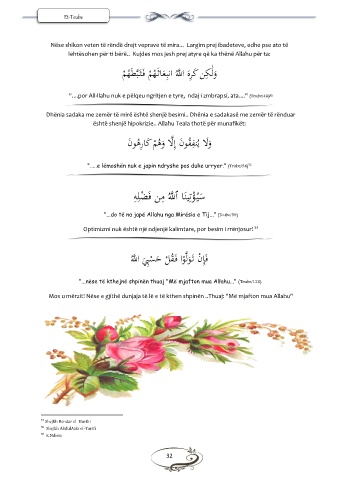 Et-Teube
Nëse shikon veten të rëndë drejt veprave të mira... Largim prej ibadeteve, edhe pse ato të
lehtësohen për ti bërë... Kujdes mos jesh prej atyre që ka thënë Allahu për ta:
وَلَٰكِنْ كَرِهَ اللَّهُ انبِعَاثَهُمْ فَثَبَّطَهُمْ
"...por All-llahu nuk e pëlqeu ngritjen e tyre, ndaj i zmbrapsi, ata...."
Dhënia sadaka me zemër të mirë është shenjë besimi.. Dhënia e sadakasë me zemër të rënduar
është shenjë hipokrizie.. Allahu Teala thotë për munafikët:
وَلَا يُنفِقُونَ إِلَّا وَهُمْ كَارِهُونَ
"... e lëmoshën nuk e japin ndryshe pos duke urryer."
سَيُؤْتِينَا ٱللَّهُ مِن فَضْلِهِ
"...do të na japë Allahu nga Mirësia e Tij..."
Optimizmi nuk është një ndjenjë kalimtare, por besim i rrënjosur!
فَإِنْ تَوَلَّوْا فَقُلْ حَسْبِيَ اللَّهُ
"...nëse të kthejnë shpinën thuaj "Më mjafton mua Allahu..."
Mos u mërzit! Nëse e gjithë dunjaja të lë e të kthen shpinën ..Thuaj: "Më mjafton mua Allahu"
32